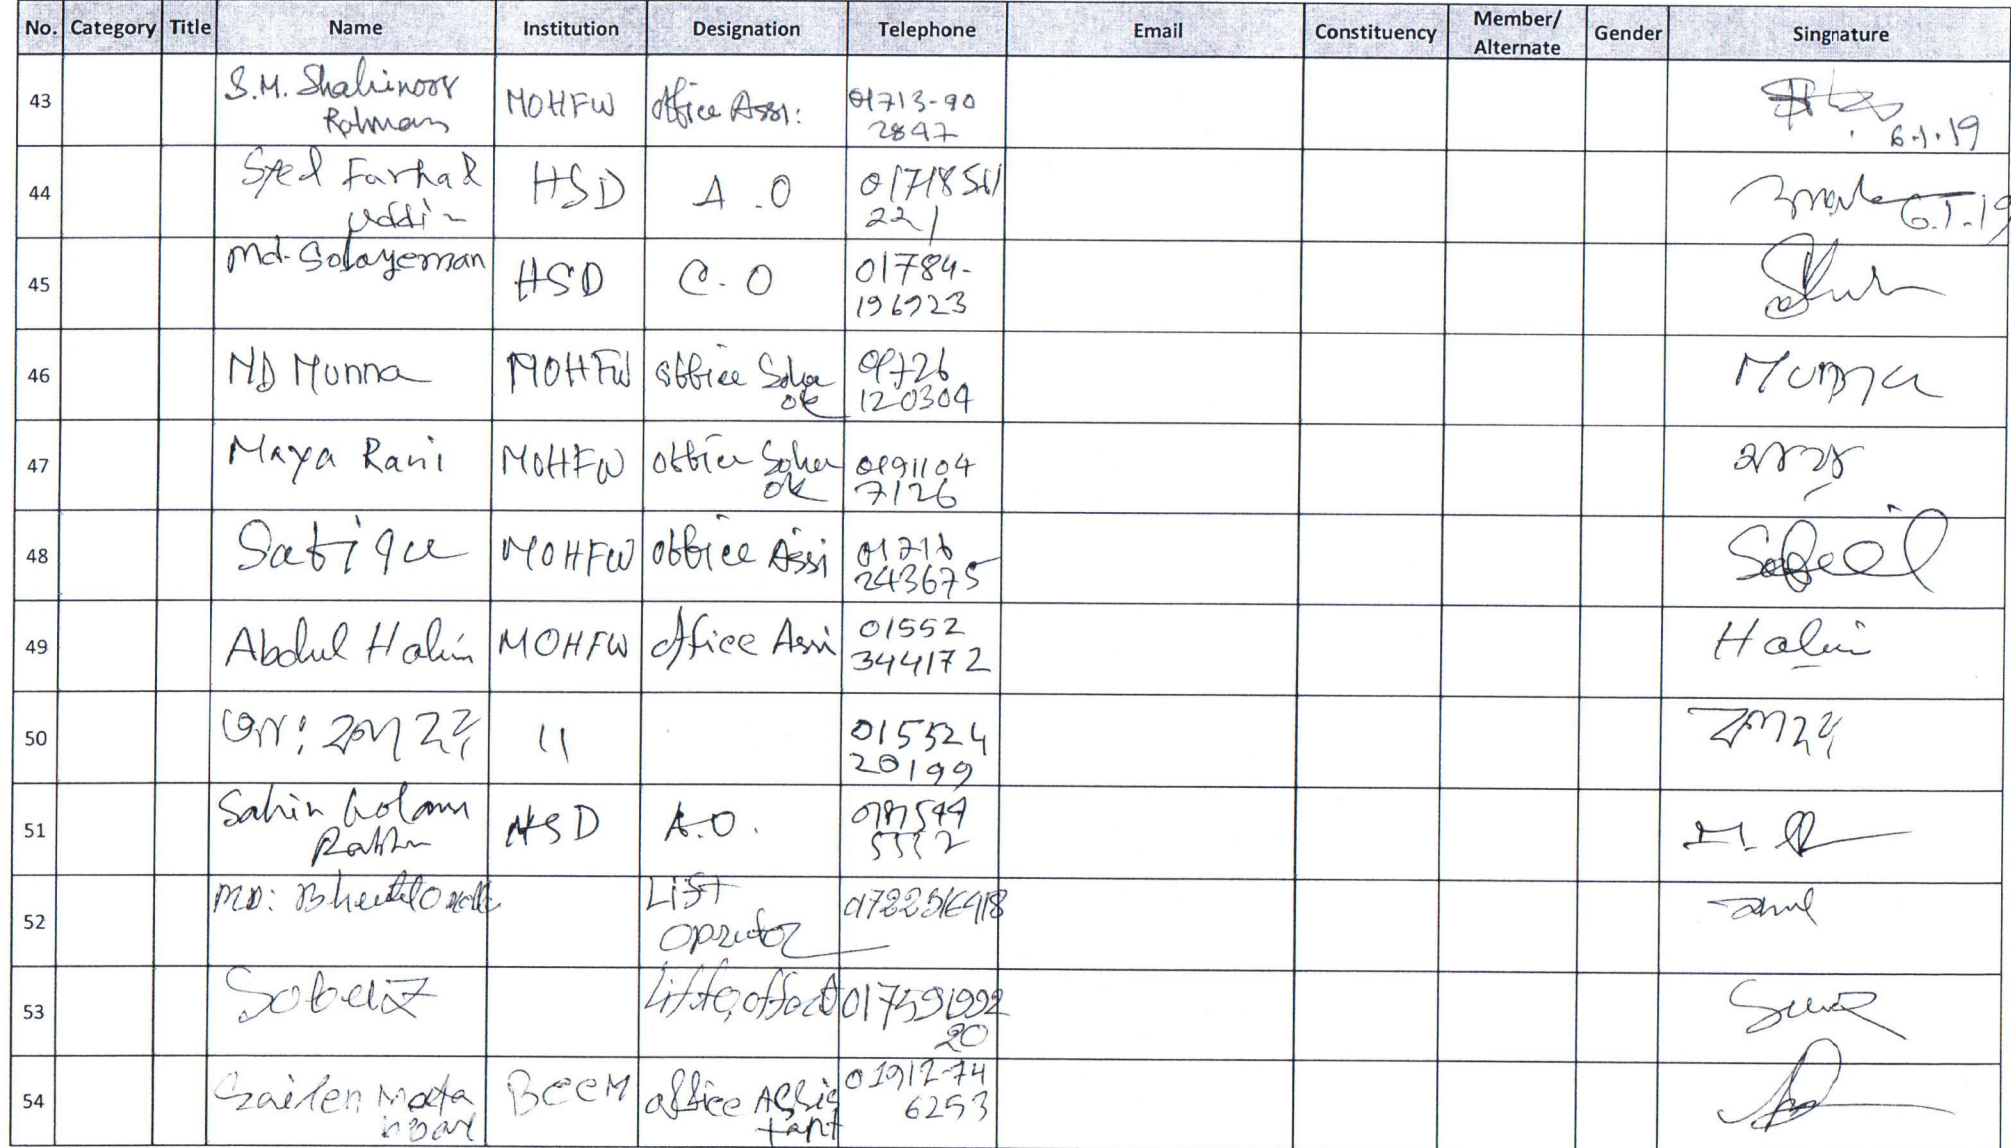 No. Category Title Name Institution Designation Telephone Email Constituency Member/ Alternate Gender Singnature
43 S.M. Shahinoor Rahman MOHFW Office Assi: 01713-90 2847 6.1.19
44 Syed Farhad Uddin HSD A.O 01718 511 221 6.1.19
45 Md. Solayeman HSD C.O 01784- 196923
46 MD Munna MOHFW office Soha ok 01726 120304 Munna
47 Maya Rani MOHFW office Soha ok 0191104 7126 মায়া
48 Safique MOHFW office Assi 01716 243675
49 Abdul Halim MOHFW office Assi 01552 344172 Halim
50 মো: 〃 015524 20199
51 Sahin Golam HSD A.O.
52 MD: List Oprator
53 017591992 20
54 Mata bbar BCCM office Assis tant 01912-74 6253